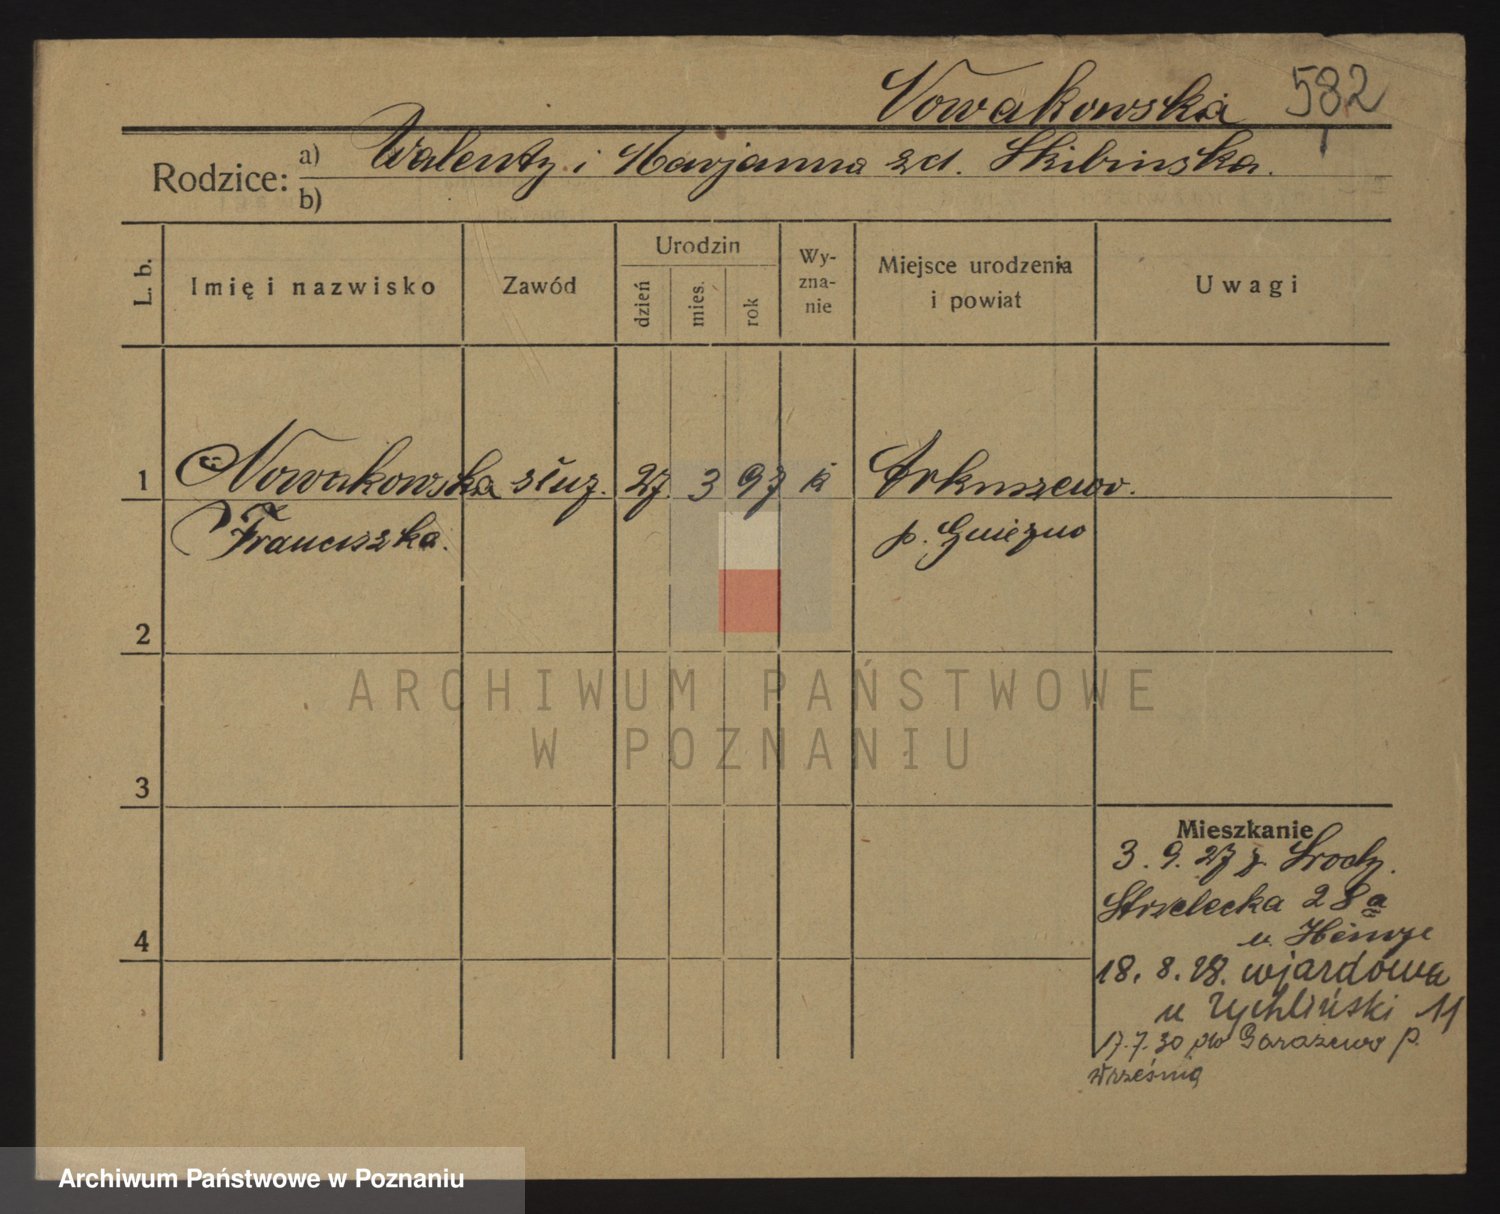 Nowakowska 582
Rodzice: a) Walenty i Marjanna zd. Skibinska.
b)
L. b. Imię i nazwisko Zawód Urodzin dzień mies. rok Wy-zna-nie Miejsce urodzenia i powiat Uwagi
1 Nowakowska służ. 27. 3 97 k Arkuszewo.
Franciszka. p. Gniezno
2
ARCHIWUM PAŃSTWOWE
W POZNANIU
3
Mieszkanie
3. 9. 27 z Środy.
Strzelecka 28a
4
u.
18. 8. 28. wjazdowa
u Rychliński 11
17.7.30 p.
Września
Archiwum Państwowe w Poznaniu